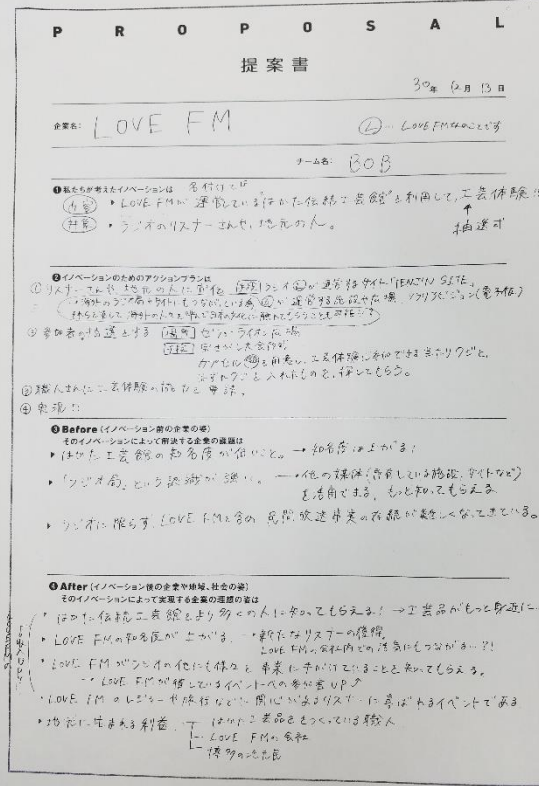 PROPOSAL
提案書
30年 12月 13日
企業名: LOVE FM Ⓛ…LOVE FMなのことです
チーム名: BOB
❶私たちが考えたイノベーションは 名付けて
内容 ・LOVE FMが運営している"はかた伝統工芸館"を利用して、工芸体験!!
↑
抽選式
対象 ・ラジオのリスナーさんや、地元の人。
❷イノベーションのためのアクションプランは
① リスナーさんや地元の人に宣伝 ラジオ Ⓛが運営するサイト「TENJIN SITE」
Ⓛが運営する施設や広場、ソラリアビジョン(電子板)
② 参加者の抽選をする 場所 ライオン広場
手段
カプセルを用意し、工芸体験に参加できる当たりクジと、
はずれクジを入れたものを、探してもらう。
③ 職人さんに工芸体験の
④ 実現!!
❸Before(イノベーション前の企業の姿)
そのイノベーションによって解決する企業の課題は
・はかた工芸館の知名度が低いこと。→知名度は上がる!
・「ラジオ局」という認識が強い。→他の媒体(運営している施設、サイトなど)
を活用できる。もっと知ってもらえる。
・ラジオに限らず、LOVE FMを含め民間放送事業の存続が難しくなってきている。
❹After(イノベーション後の企業や地域、社会の姿)
そのイノベーションによって実現する企業の理想の姿は
・はかた伝統工芸館をより多くの人に知ってもらえる!→工芸品がもっと身近に…
・LOVE FMの知名度が上がる。→新たなリスナーの獲得
LOVE FMの会社内での活気にもつながる…?!
・LOVE FMがラジオの他にも様々な事業に手がけていることを知ってもらえる。
→LOVE FMが催しているイベントへの参加者UP↑
・LOVE FMのレジャーや旅行などに関心があるリスナーに喜ばれるイベントである
・地元に生まれる利益 はかた工芸品をつくっている職人
LOVE FMの会社
博多の